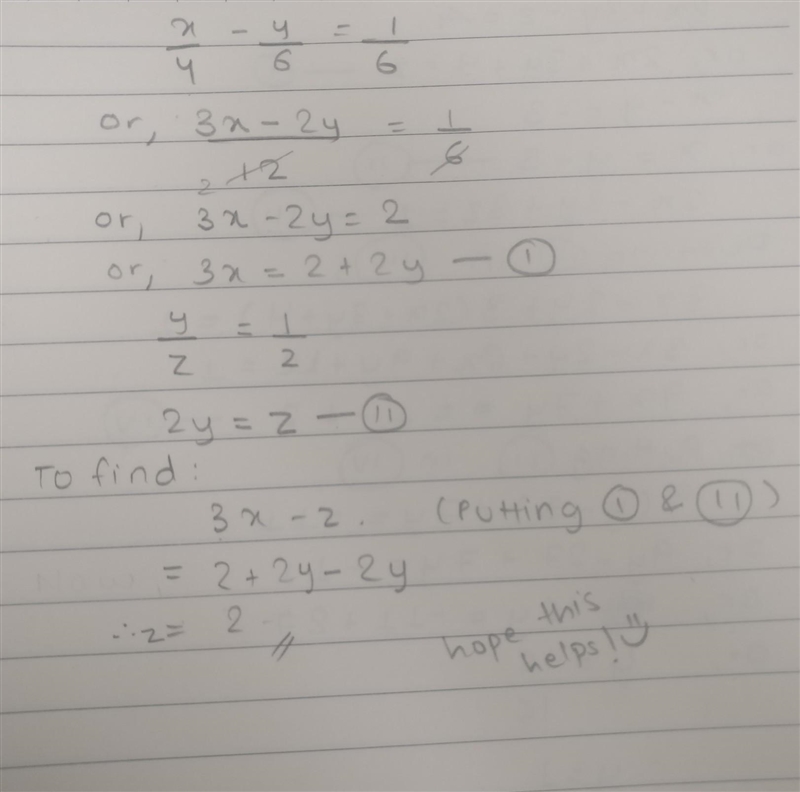 x/4 - y/6 = 1/6
or, 3x - 2y / 12 = 1/6
2
or, 3x - 2y = 2
or, 3x = 2 + 2y — (I)
y/z = 1/2
2y = z — (II)
To find:
3x - z. (Putting (I) & (II))
= 2 + 2y - 2y
∴ z = 2 //
hope this helps! :)